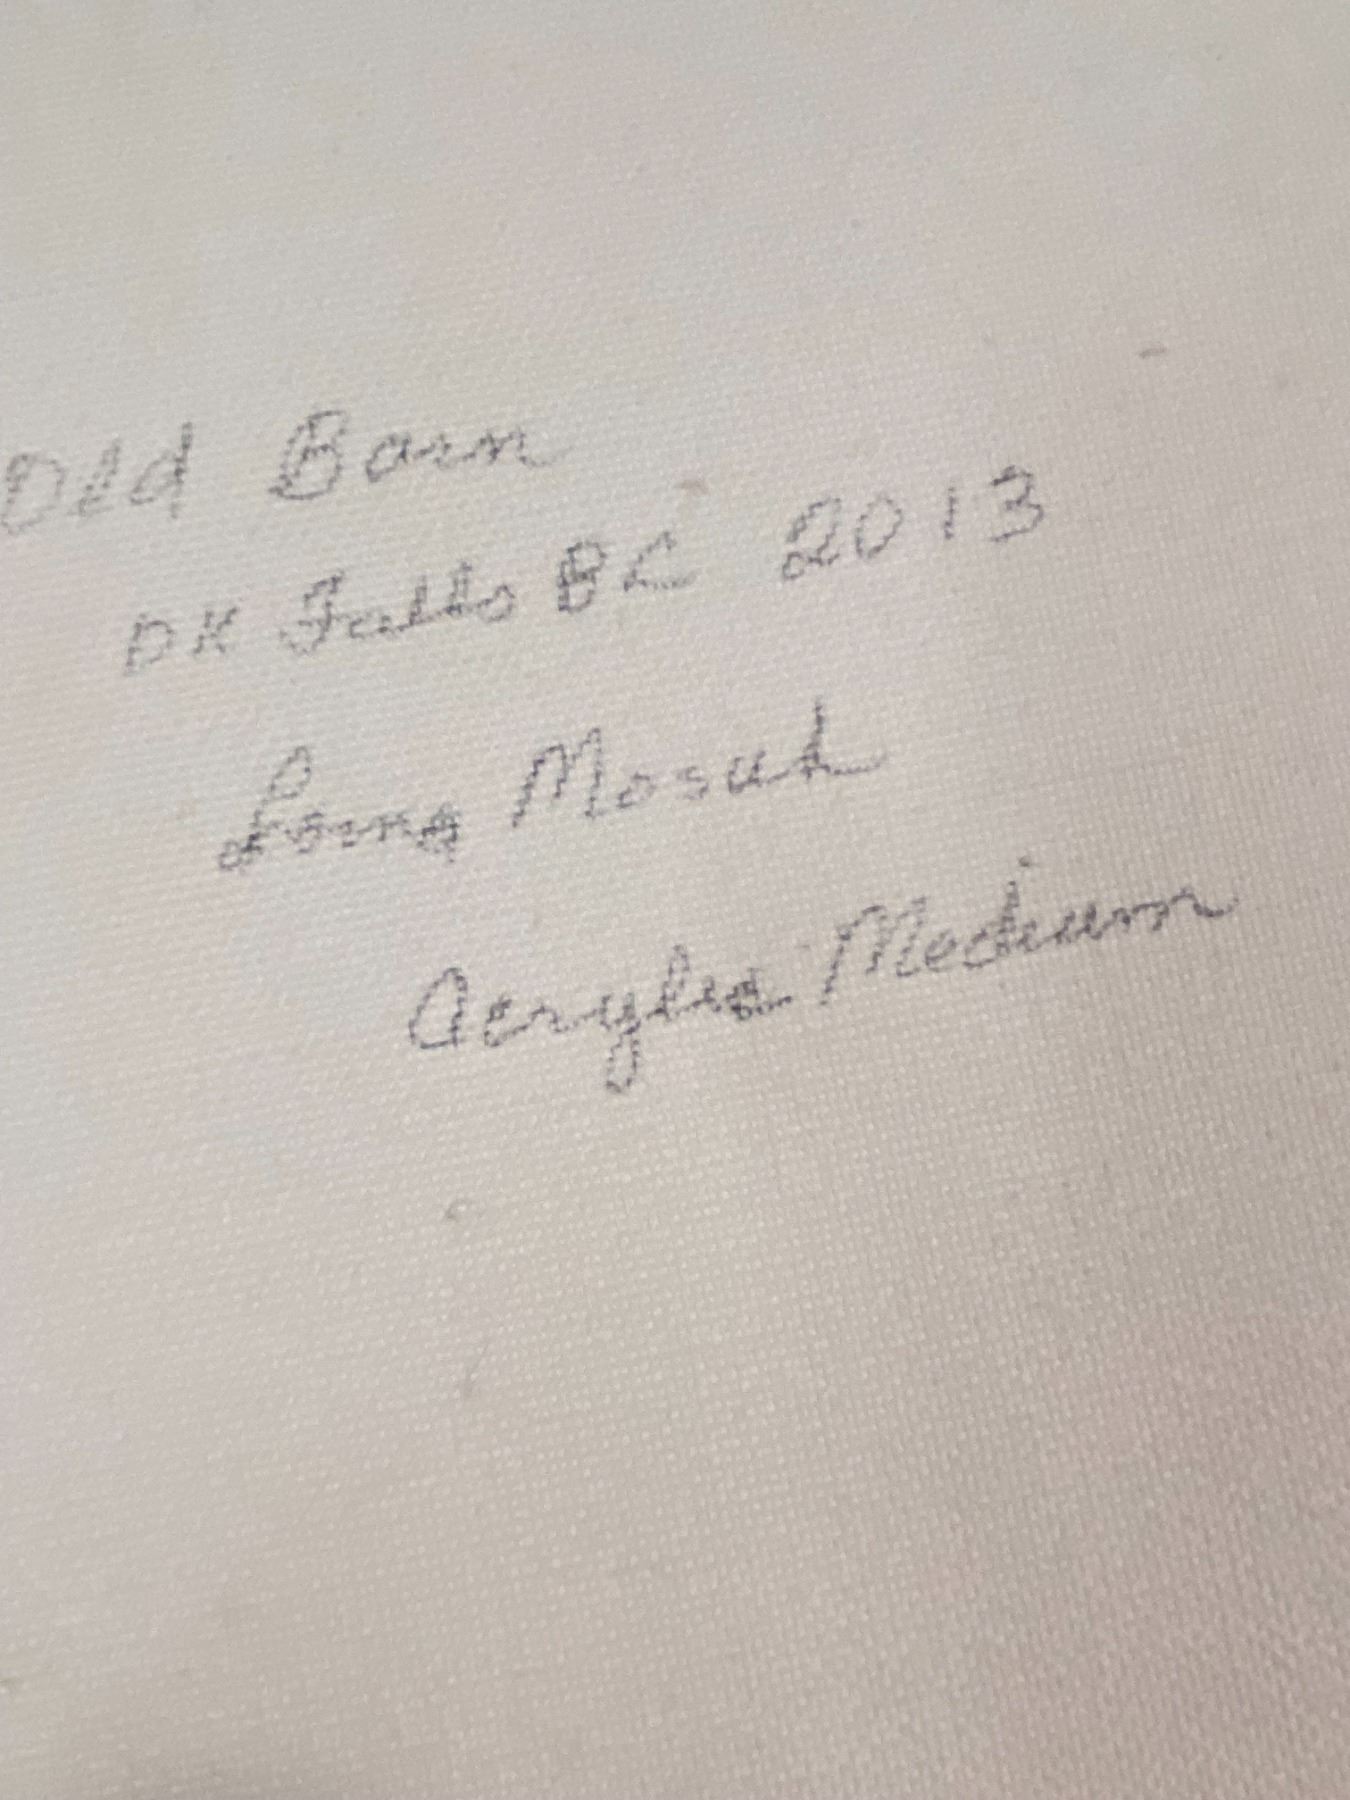 Old Barn
OK Falls BC 2013
Lorna Mosuk
Acrylic Medium